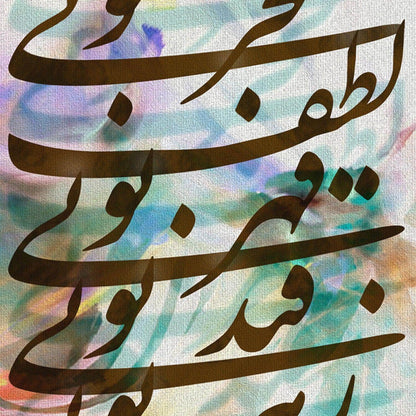 بحر تویی
لطف
قهر تویی
قند تویی